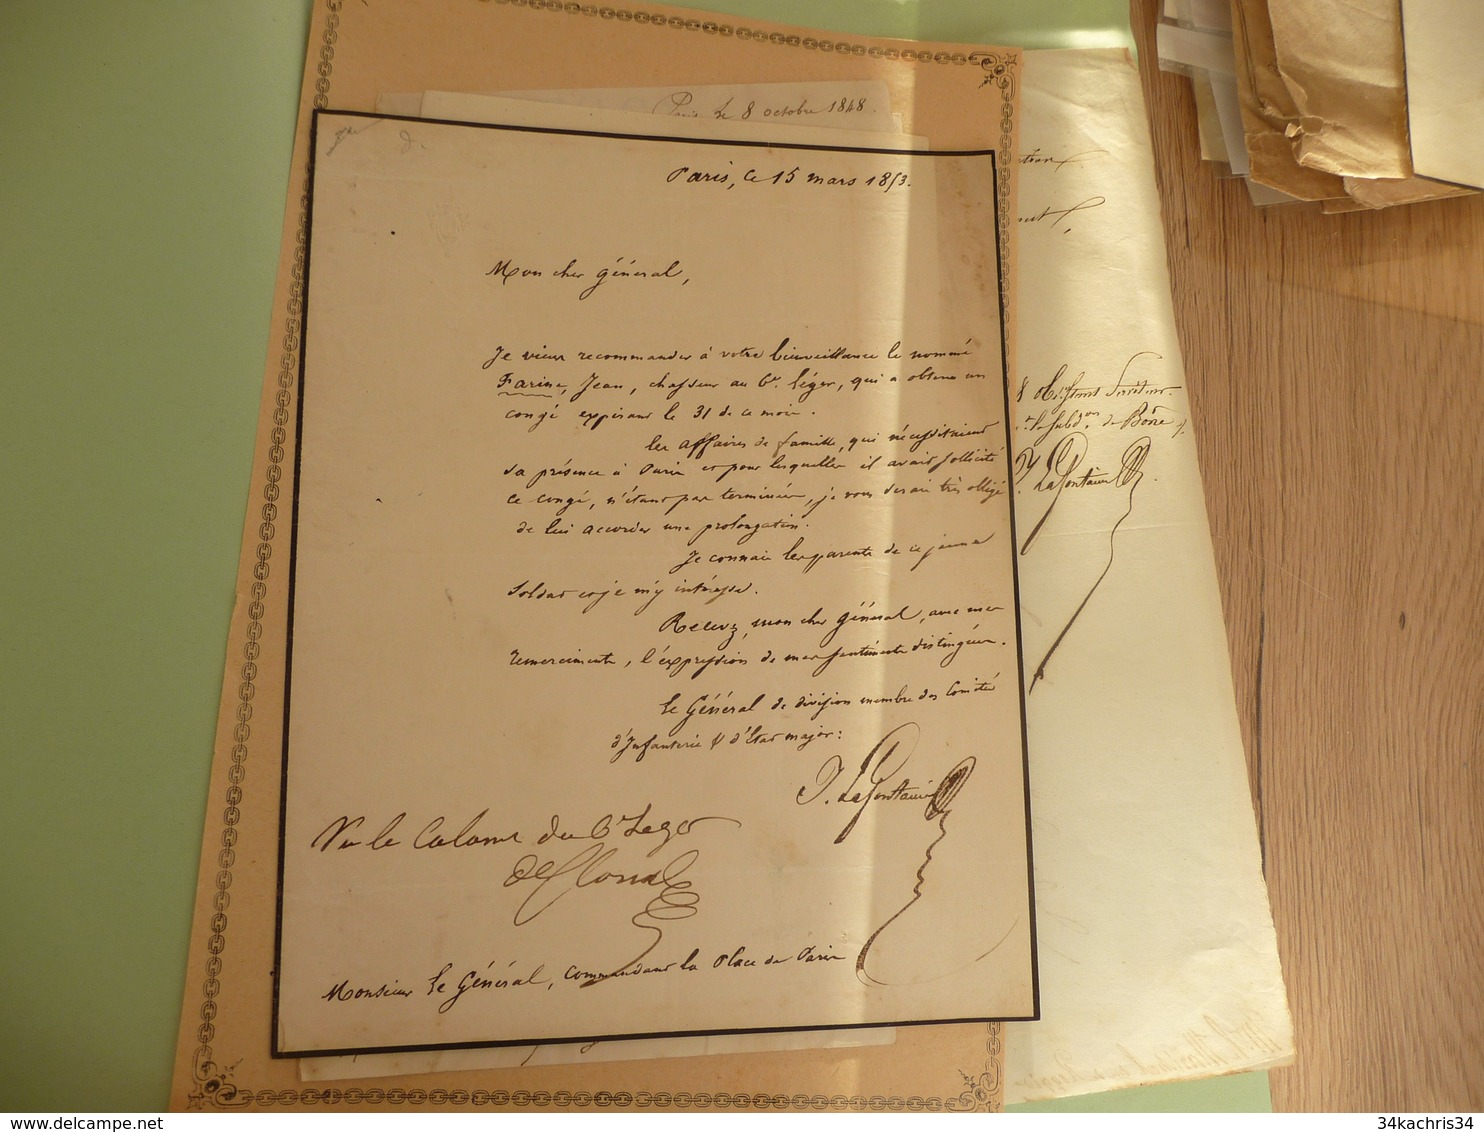 Paris Le 8 octobre 1848.
Paris, ce 15 mars 1853.
Mon cher général,
Je viens recommander à votre bienveillance le nommé
Farine, Jean, chasseur au 6e. léger, qui a obtenu un
congé expirant le 31 de ce mois.
Les affaires de famille, qui nécessitaient
sa présence à Paris et pour lesquelles il avait sollicité
ce congé, n'étant pas terminées, je vous serais très obligé
de lui accorder une prolongation.
Je connais les parents de ce jeune
soldat et je m'y intéresse.
Recevez, mon cher général, avec mes
remerciments, l'expression de mes sentiments distingués.
Le Général de division membre des Comités
d'Infanterie & d'Etat major:
J. Lafontaine
Vu le Colonel du 6e Leger
Monsieur le Général, commandant la Place de Paris
de la Subdon. de Bône
J. Lafontaine
34kachris34
34kachris34